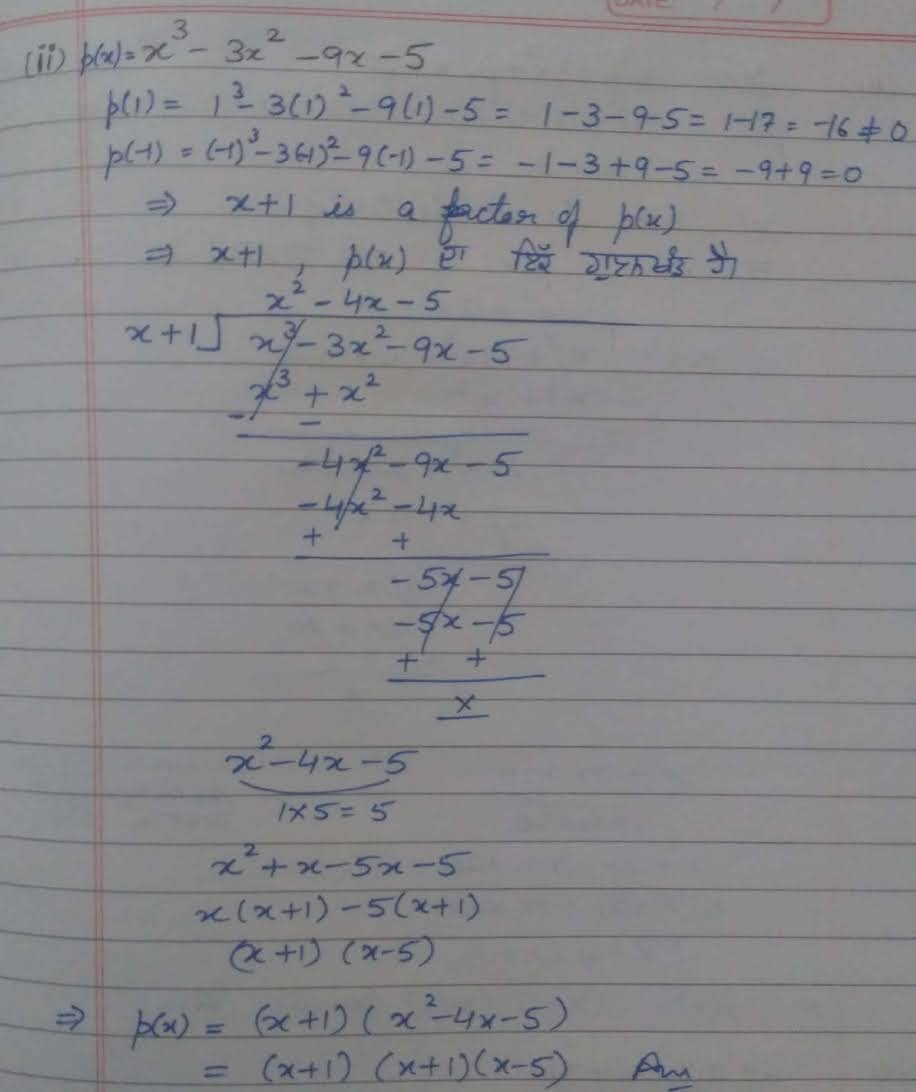 (ii) p(x) = x³ - 3x² - 9x - 5
p(1) = 1³ - 3(1)² - 9(1) - 5 = 1 - 3 - 9 - 5 = 1 - 17 = -16 ≠ 0
p(-1) = (-1)³ - 3(-1)² - 9(-1) - 5 = -1 - 3 + 9 - 5 = -9 + 9 = 0
⇒ x+1 is a factor of p(x)
⇒ x+1, p(x) ਦਾ ਇੱਕ ਗੁਣਨਖੰਡ ਹੈ
x² - 4x - 5
x+1 ) x³ - 3x² - 9x - 5
x³ + x²
- -
-4x² - 9x - 5
-4x² - 4x
+ +
-5x - 5
-5x - 5
+ +
x
x² - 4x - 5
1×5 = 5
x² + x - 5x - 5
x(x+1) - 5(x+1)
(x+1) (x-5)
⇒ p(x) = (x+1) (x² - 4x - 5)
= (x+1) (x+1)(x-5) Ans